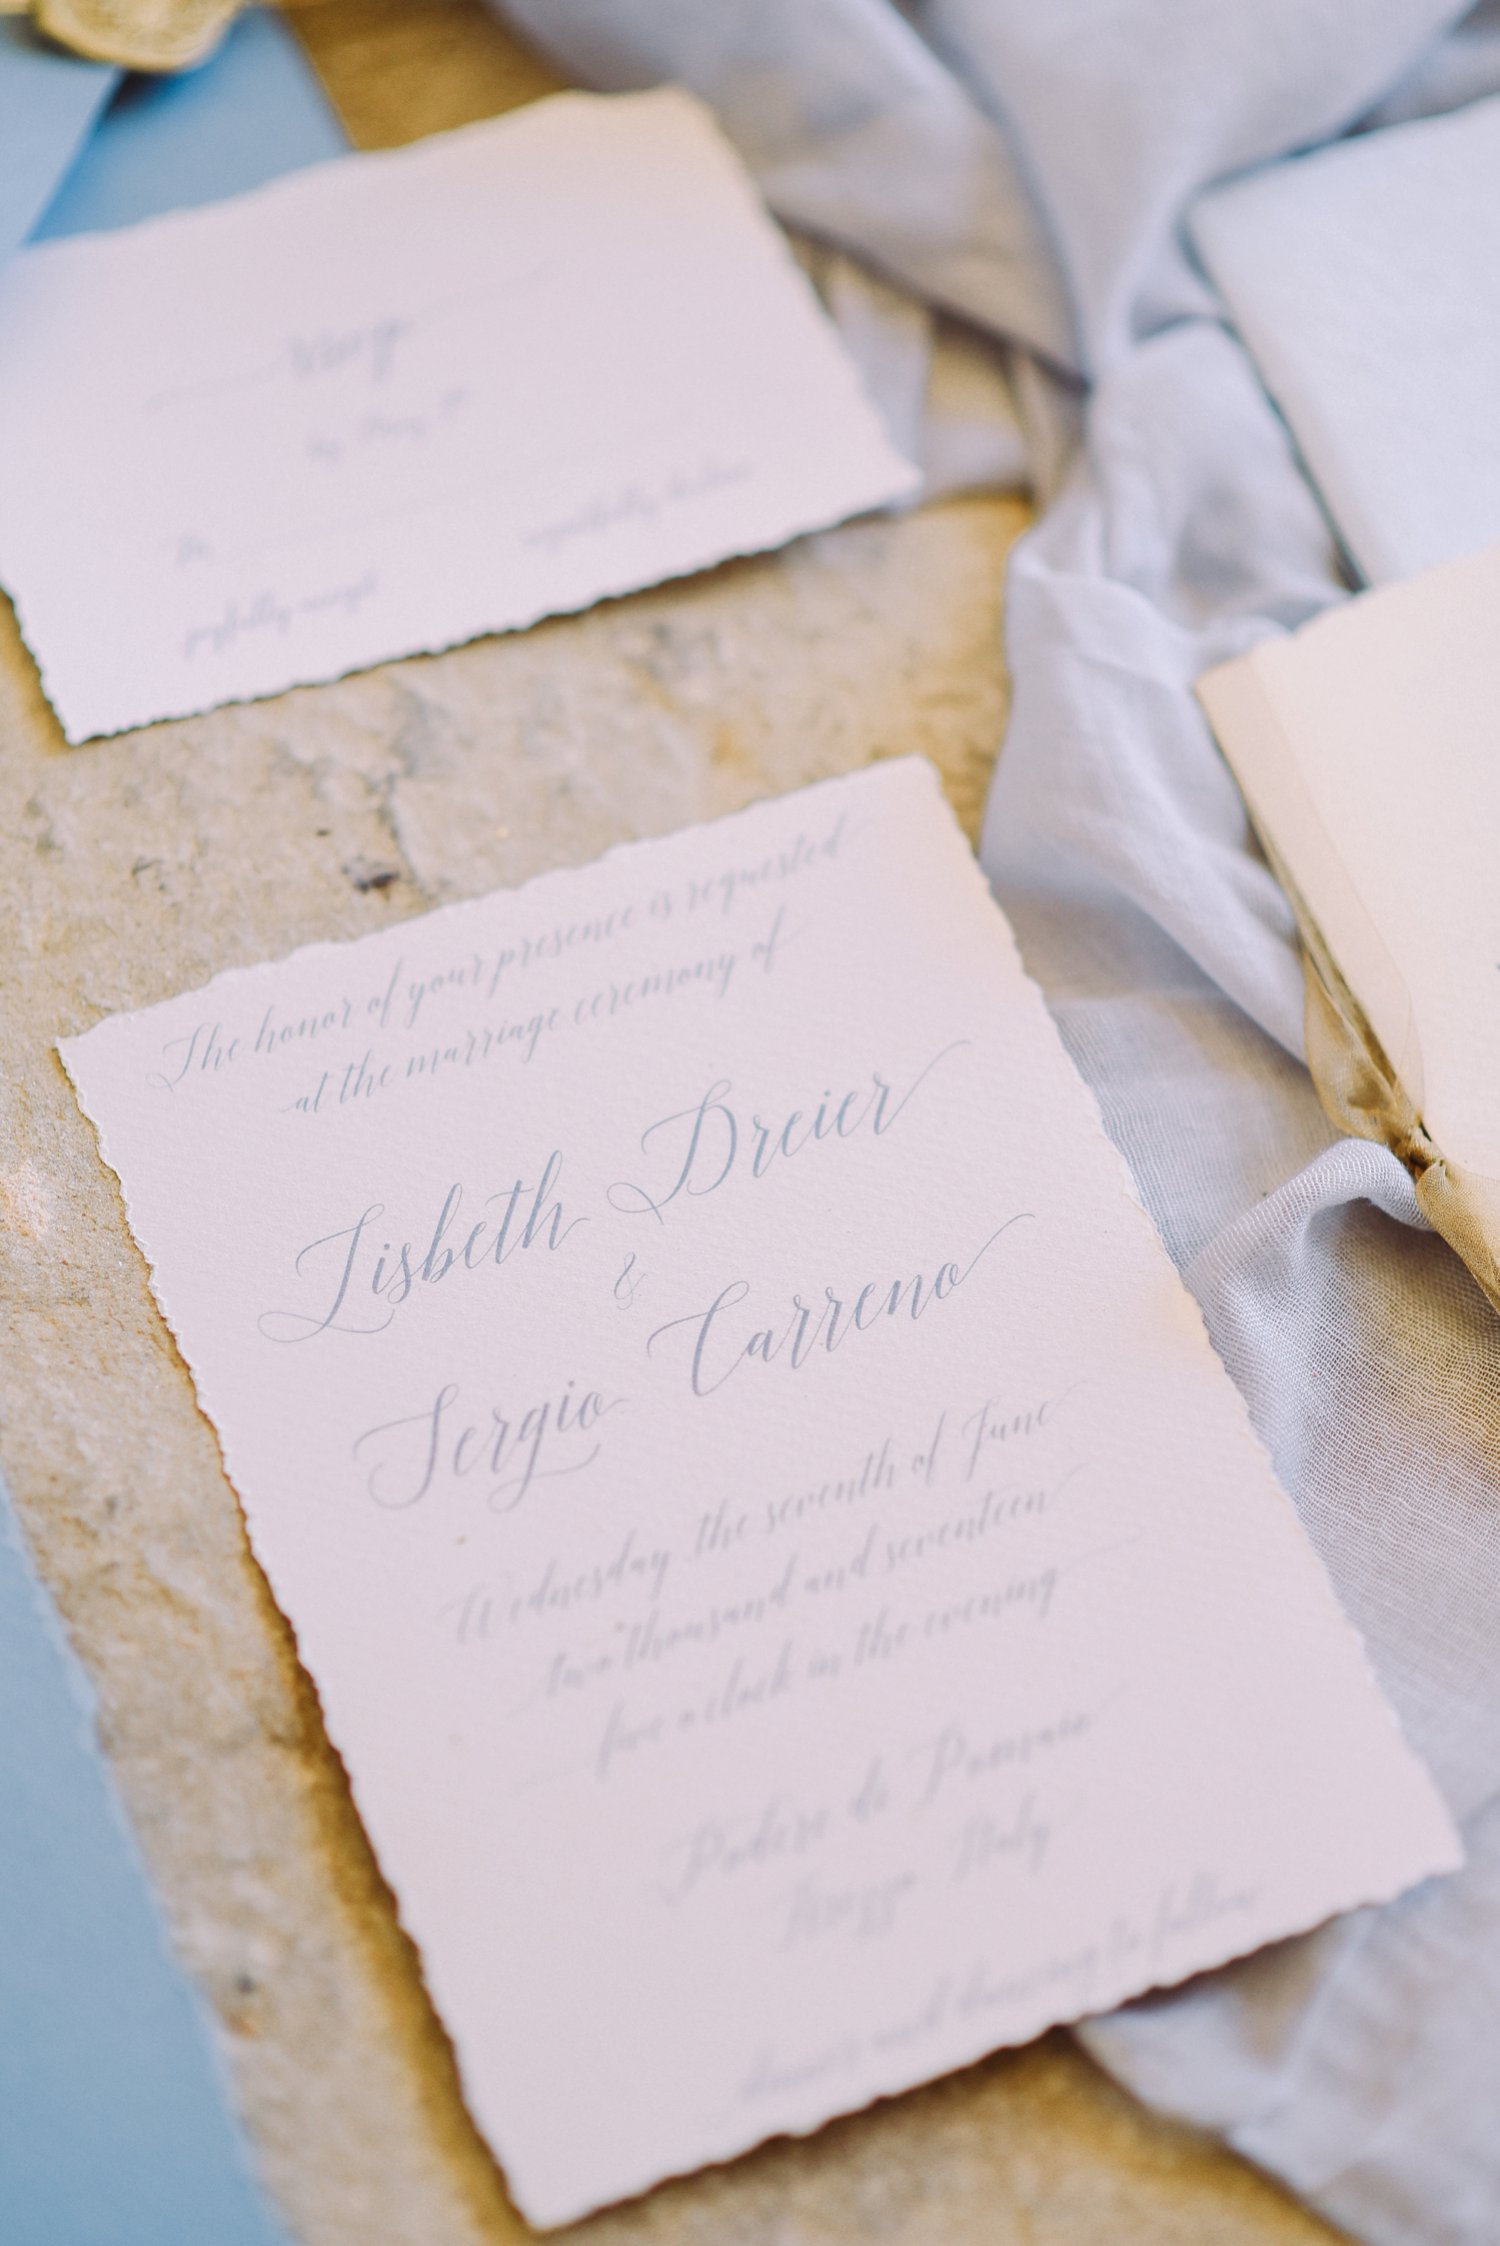 Rsvp
by May 1st
M
joyfully accept
respectfully decline
The honor of your presence is requested
at the marriage ceremony of
Lisbeth Dreier
&
Sergio Carreno
Wednesday the seventh of June
two thousand and seventeen
five o'clock in the evening
Podere di Pomaio
Arezzo Italy
dinner and dancing to follow